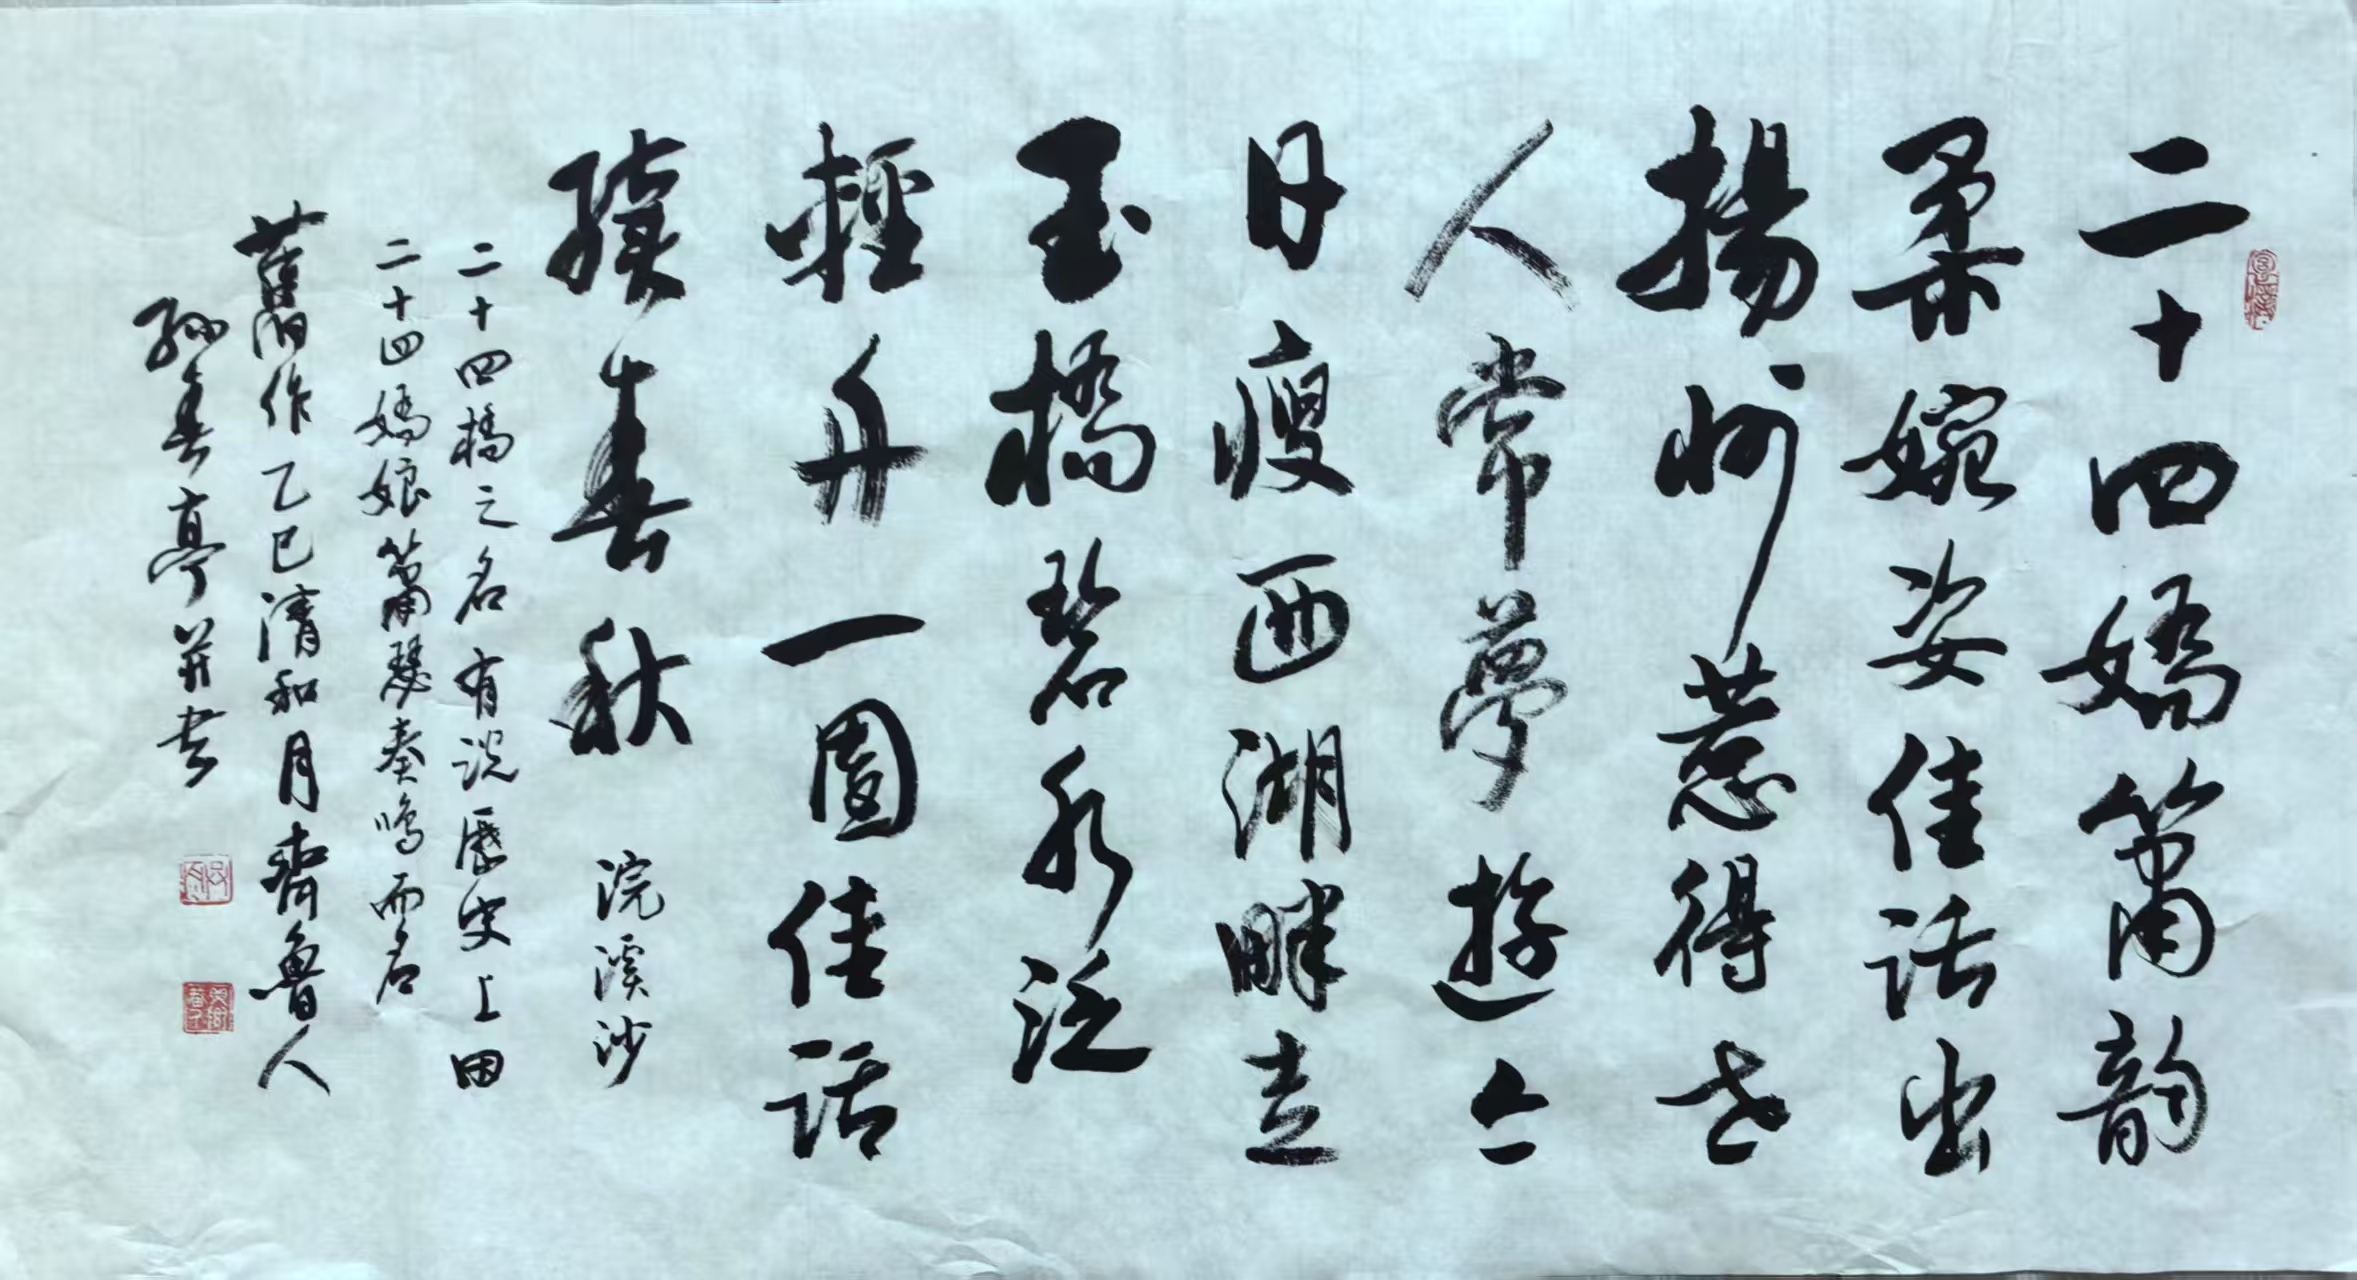 二十四嬌簫韵
柔婉姿佳話出
揚州惹得世
人常夢遊今
日瘦西湖畔走
玉橋碧水泛
輕舟一圖佳話
續春秋
浣溪沙
二十四橋之名有说歷史上因
二十四嬌娘簫瑟奏鳴而名
舊作乙巳清和月齊魯人
孫春亭并书